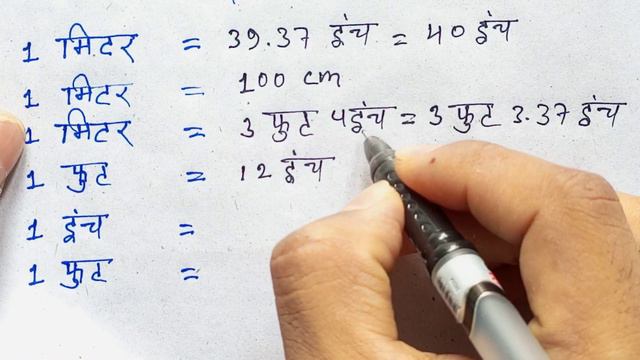 1 मिटर = 39.37 इंच = 40 इंच
1 मिटर = 100 cm
1 मिटर = 3 फुट 4इंच = 3 फुट 3.37 इंच
1 फुट = 12 इंच
1 इंच =
1 फुट =